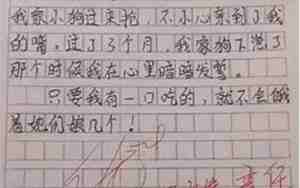 我亲小狗过来抢，不小心亲到了我
的嘴，过了3个月，我家狗下崽了
那个时候我在心里暗暗发誓。
只要我有一口吃的，就不会饿
着她们娘几个！